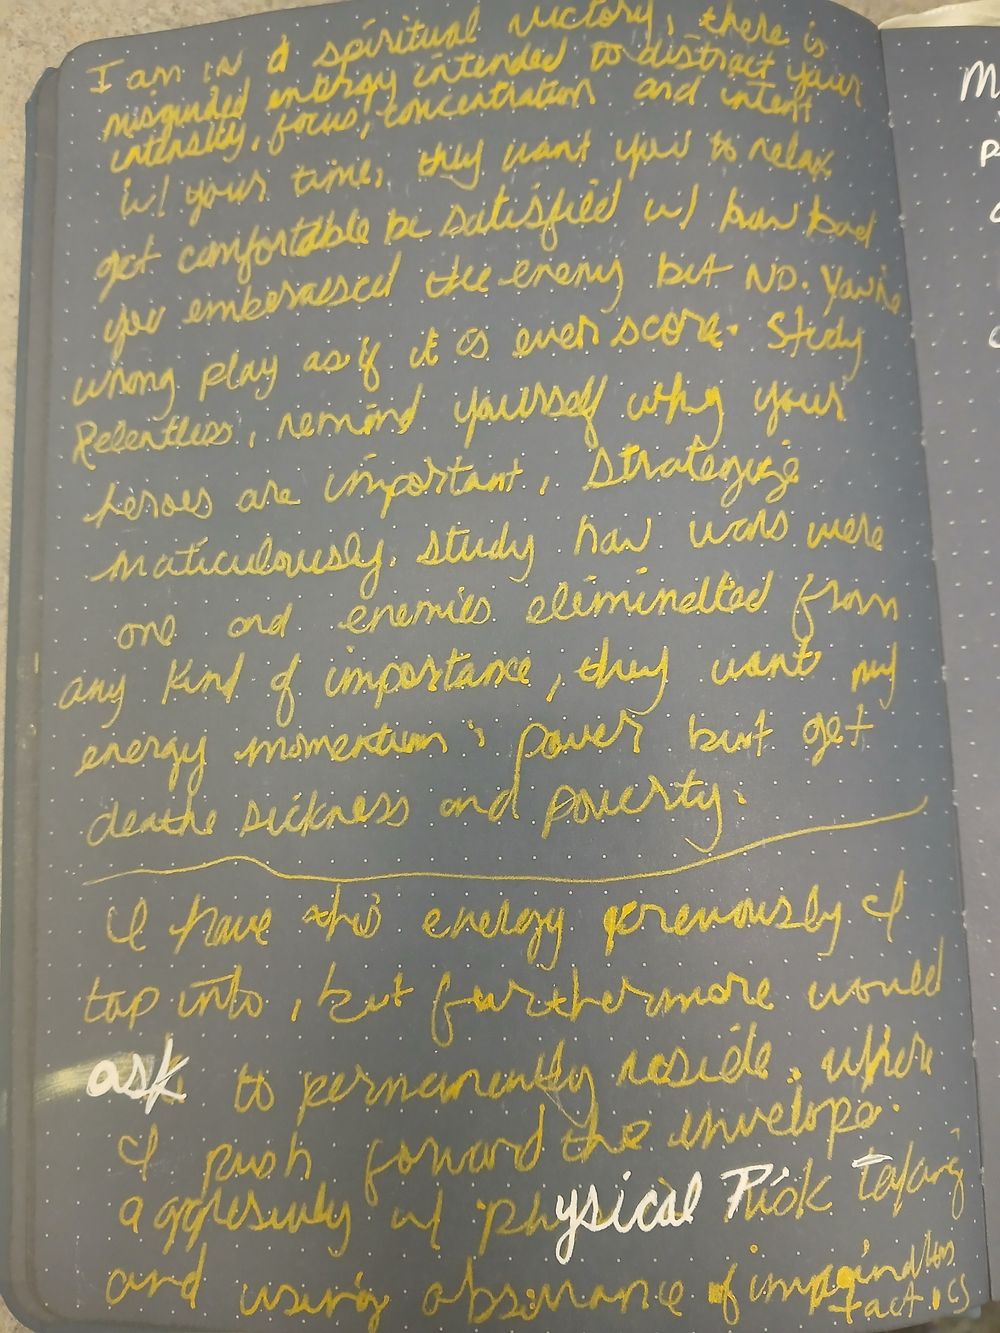 I am in a spiritual victory, there is
misguided energy intended to distract your
intensity, focus, concentration and intent
w/ your time, they want you to relax
get comfortable be satisfied w/ how bad
you emberassed the enemy but NO. You're
wrong play as if it is even score. Study
Relentless, remind yourself why your
heroes are important, strategize
maticulously, study how wars were
one and enemies eliminated from
any kind of importance, they want my
energy momentum & power but get
deathe sickness and poverty.
I have this energy previously I
tap into, but furthermore would
ask to permanently reside, where
I push forward the envelope
aggresivly w/ physical Risk taking
and using of
tactics
M